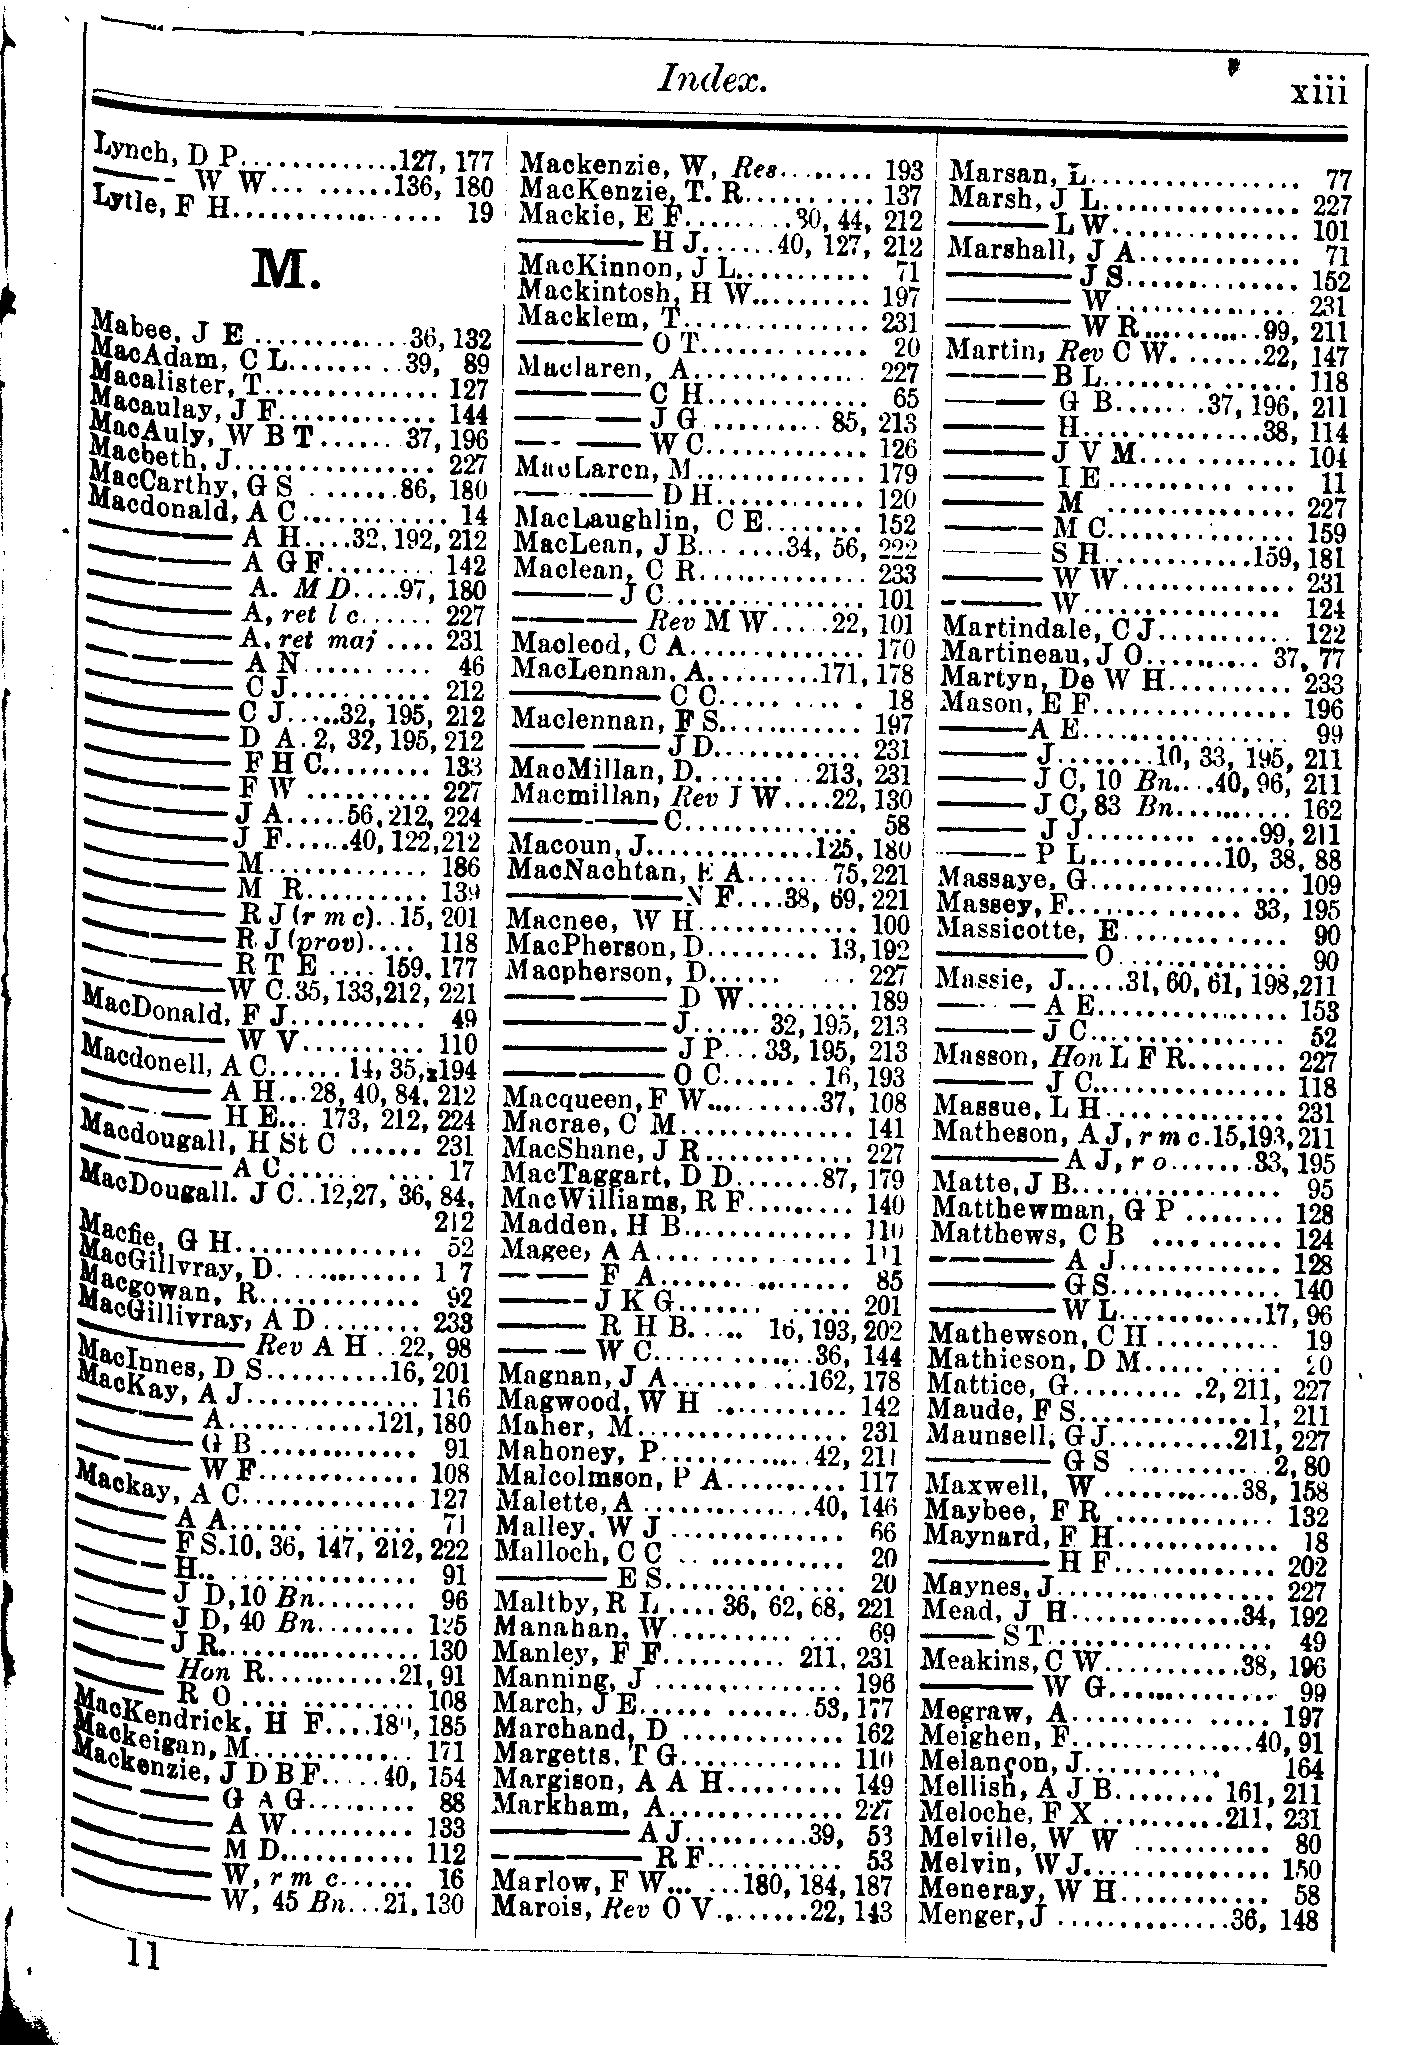 Index.
xiii
Lynch, D P.............127, 177
——- W W... ......136, 180
Lytle, F H................... 19
M.
Mabee, J E ............36, 132
MacAdam, C L.........39, 89
Macalister, T.............. 127
Macaulay, J F............. 144
MacAuly, W B T...... 37, 196
Macbeth, J................ 227
MacCarthy, G S .......86, 180
Macdonald, A C............ 14
———— A H....32, 192, 212
———— A G F......... 142
———— A. M D....97, 180
———— A, ret l c...... 227
———— A, ret maj .... 231
———— A N.......... 46
———— C J........... 212
———— C J.....32, 195, 212
———— D A. 2, 32, 195, 212
———— F H C......... 133
———— F W .......... 227
———— J A.....56, 212, 224
———— J F......40, 122, 212
———— M............. 186
———— M R.......... 139
———— R J (r m c)..15, 201
———— R J (prov).... 118
———— R T E .... 159, 177
————W C.35, 133, 212, 221
MacDonald, F J........... 49
———— W V.......... 110
Macdonell, A C...... 14, 35, 194
———— A H...28, 40, 84, 212
———— H E... 173, 212, 224
Macdougall, H St C ...... 231
———— A C............ 17
MacDougall. J C..12,27, 36, 84,
212
Macfie, G H............... 52
MacGillvray, D............ 1 7
Macgowan, R............. 92
MacGillivray, A D ........ 233
———— Rev A H ..22, 98
MacInnes, D S..........16, 201
MacKay, A J.............. 116
———— A............121, 180
———— G B............. 91
———— W F............. 108
Mackay, A C.............. 127
——— A A............... 71
——— F S.10, 36, 147, 212, 222
——— H.. ............... 91
——— J D, 10 Bn........ 96
——— J D, 40 Bn........ 125
——— J R................ 130
——— Hon R...........21, 91
——— R O .... ......... 108
MacKendrick, H F....18, 185
Mackeigan, M............. 171
Mackenzie, J D B F.....40, 154
———— G A G......... 88
———— A W.......... 133
———— M D........... 112
———— W, r m c...... 16
———— W, 45 Bn...21, 130
11
Mackenzie, W, Res........ 193
MacKenzie, T. R........... 137
Mackie, E F.........30, 44, 212
———— H J......40, 127, 212
MacKinnon, J L........... 71
Mackintosh, H W.......... 197
Macklem, T............... 231
———— O T............. 20
Maclaren, A............... 227
———— C H............. 65
———— J G .......... 85, 213
———— W C............. 126
MacLaren, M.............. 179
———— D H............ 120
MacLaughlin, C E......... 152
MacLean, J B.......34, 56, 222
Maclean, C R............. 233
———— J C................ 101
———— Rev M W.....22, 101
Macleod, C A.............. 170
MacLennan, A.........171, 178
———— C C........... 18
Maclennan, F S........... 197
———— J D............ 231
MacMillan, D.........213, 231
Macmillan, Rev J W....22, 130
————C............... 58
Macoun, J..............125, 180
MacNachtan, E A.......75, 221
———— N F....38, 69, 221
Macnee, W H............. 100
MacPherson, D.......... 13, 192
Macpherson, D...... ... 227
———— D W......... 189
———— J...... 32, 195, 213
———— J P... 33, 195, 213
———— O C....... .16, 193
Macqueen, F W..........37, 108
Macrae, C M.............. 141
MacShane, J R............ 227
MacTaggart, D D.......87, 179
MacWilliams, R F......... 140
Madden, H B.............. 110
Magee, A A................ 111
——— F A............... 85
——— J K G....... ...... 201
——— R H B..... 16, 193, 202
——— W C............36, 144
Magnan, J A...........162, 178
Magwood, W H ........... 142
Maher, M................. 231
Mahoney, P............42, 211
Malcolmson, P A.......... 117
Malette, A .............40, 146
Malley, W J .............. 66
Malloch, C C .. .......... 20
———— E S............... 20
Maltby, R L .... 36, 62, 68, 221
Manahan, W.......... ... 69
Manley, F F.......... 211, 231
Manning, J ............... 196
March, J E..............53, 177
Marchand, D ............. 162
Margetts, T G............. 110
Margison, A A H.......... 149
Markham, A.............. 227
———— A J..........39, 53
———— R F........... 53
Marlow, F W... ...180, 184, 187
Marois, Rev O V........22, 143
Marsan, L................. 77
Marsh, J L................ 227
———— L W............... 101
Marshall, J A............. 71
———— J S.............. 152
———— W ............... 231
———— W R..........99, 211
Martin, Rev C W. ......22, 147
———— B L............... 118
——— G B.......37, 196, 211
——— H..............38, 114
——— J V M........... 104
——— I E .............. 11
——— M .............. 227
——— M C.............. 159
——— S H...........159, 181
——— W W............. 231
——— W................ 124
Martindale, C J........... 122
Martineau, J O.......... 37, 77
Martyn, De W H.......... 233
Mason, E F................ 196
———A E................. 99
——— J........10, 33, 195, 211
——— J C, 10 Bn....40, 96, 211
——— J C, 83 Bn.......... 162
——— J J......... ....99, 211
——— P L...........10, 38, 88
Massaye, G................ 109
Massey, F............... 33, 195
Massicotte, E............. 90
———— O............... 90
Massie, J.....31, 60, 61, 198, 211
——— A E............... 153
——— J C................ 52
Masson, Hon L F R........ 227
——— J C................ 118
Massue, L H.............. 231
Matheson, A J, r m c.15, 193, 211
———— A J, r o.......33, 195
Matte, J B................ 95
Matthewman, G P ........ 128
Matthews, C B .......... 124
———— A J............ 128
———— G S............. 140
———— W L...........17, 96
Mathewson, C H .......... 19
Mathieson, D M........... 20
Mattice, G......... .2, 211, 227
Maude, F S.............. 1, 211
Maunsell, G J..........211, 227
———— G S ............2, 80
Maxwell, W ...........38, 158
Maybee, F R ............. 132
Maynard, F H............. 18
———— H F............. 202
Maynes, J................. 227
Mead, J H..............34, 192
——— S T................. 49
Meakins, C W...........38, 196
———— W G.............. 99
Megraw, A............... 197
Meighen, F...............40, 91
Melançon, J........... 164
Mellish, A J B........ 161, 211
Meloche, F X ..........211, 231
Melville, W W ........... 80
Melvin, W J............... 150
Meneray, W H............ 58
Menger, J ..............36, 148